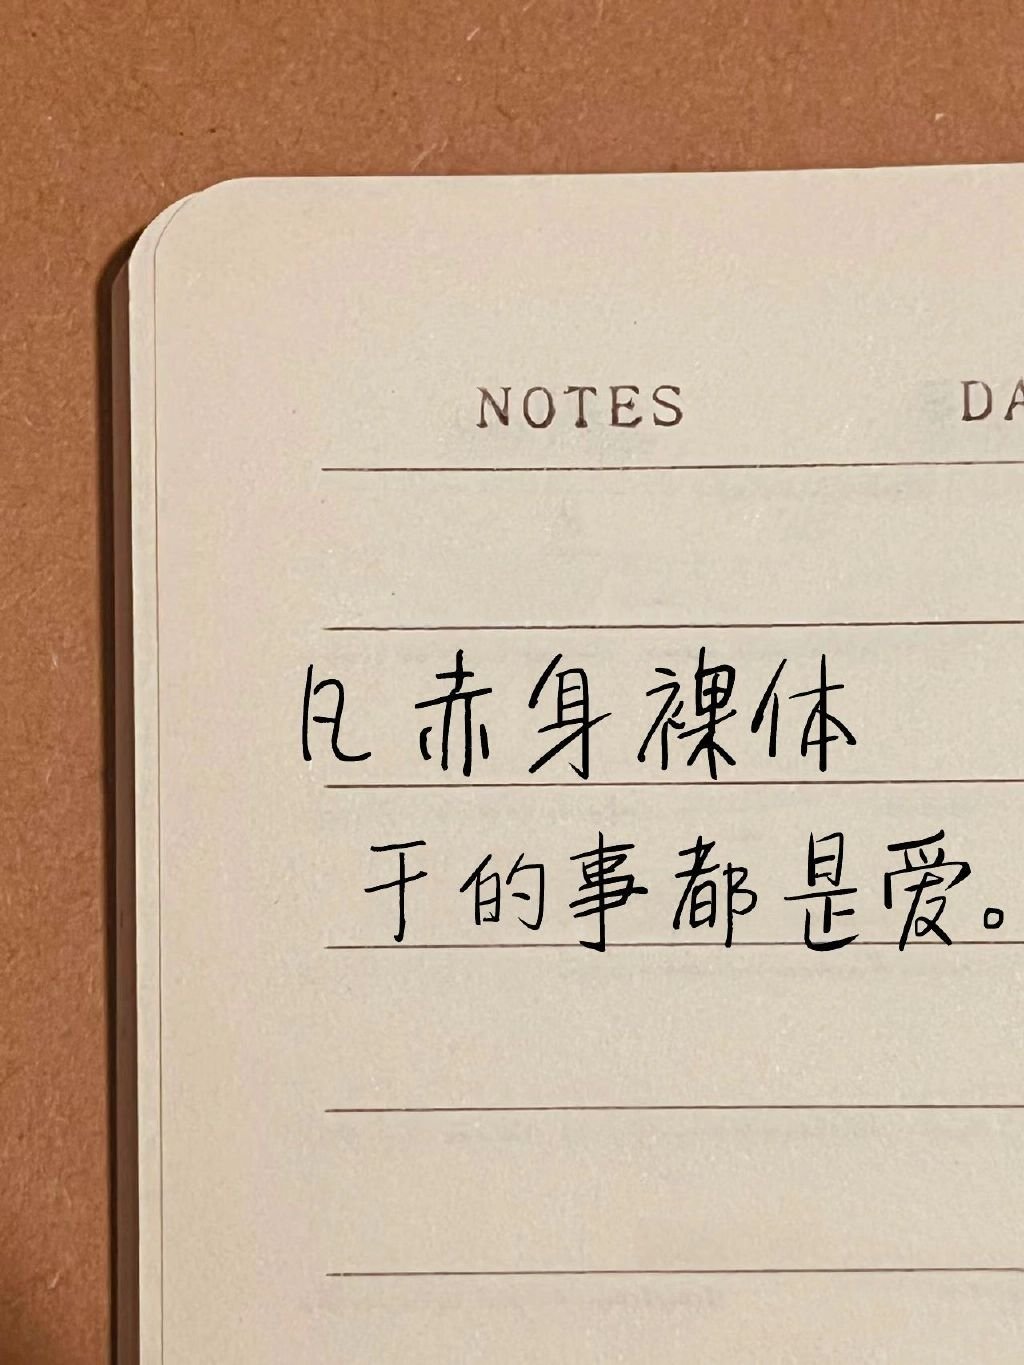 NOTES DA
凡赤身裸体
干的事都是爱。